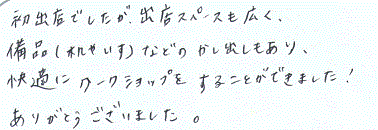 初出店でしたが、出店スペースも広く、
備品(机やいす)などのかし出しもあり、
快適にワークショップをすることができました!
ありがとうございました。